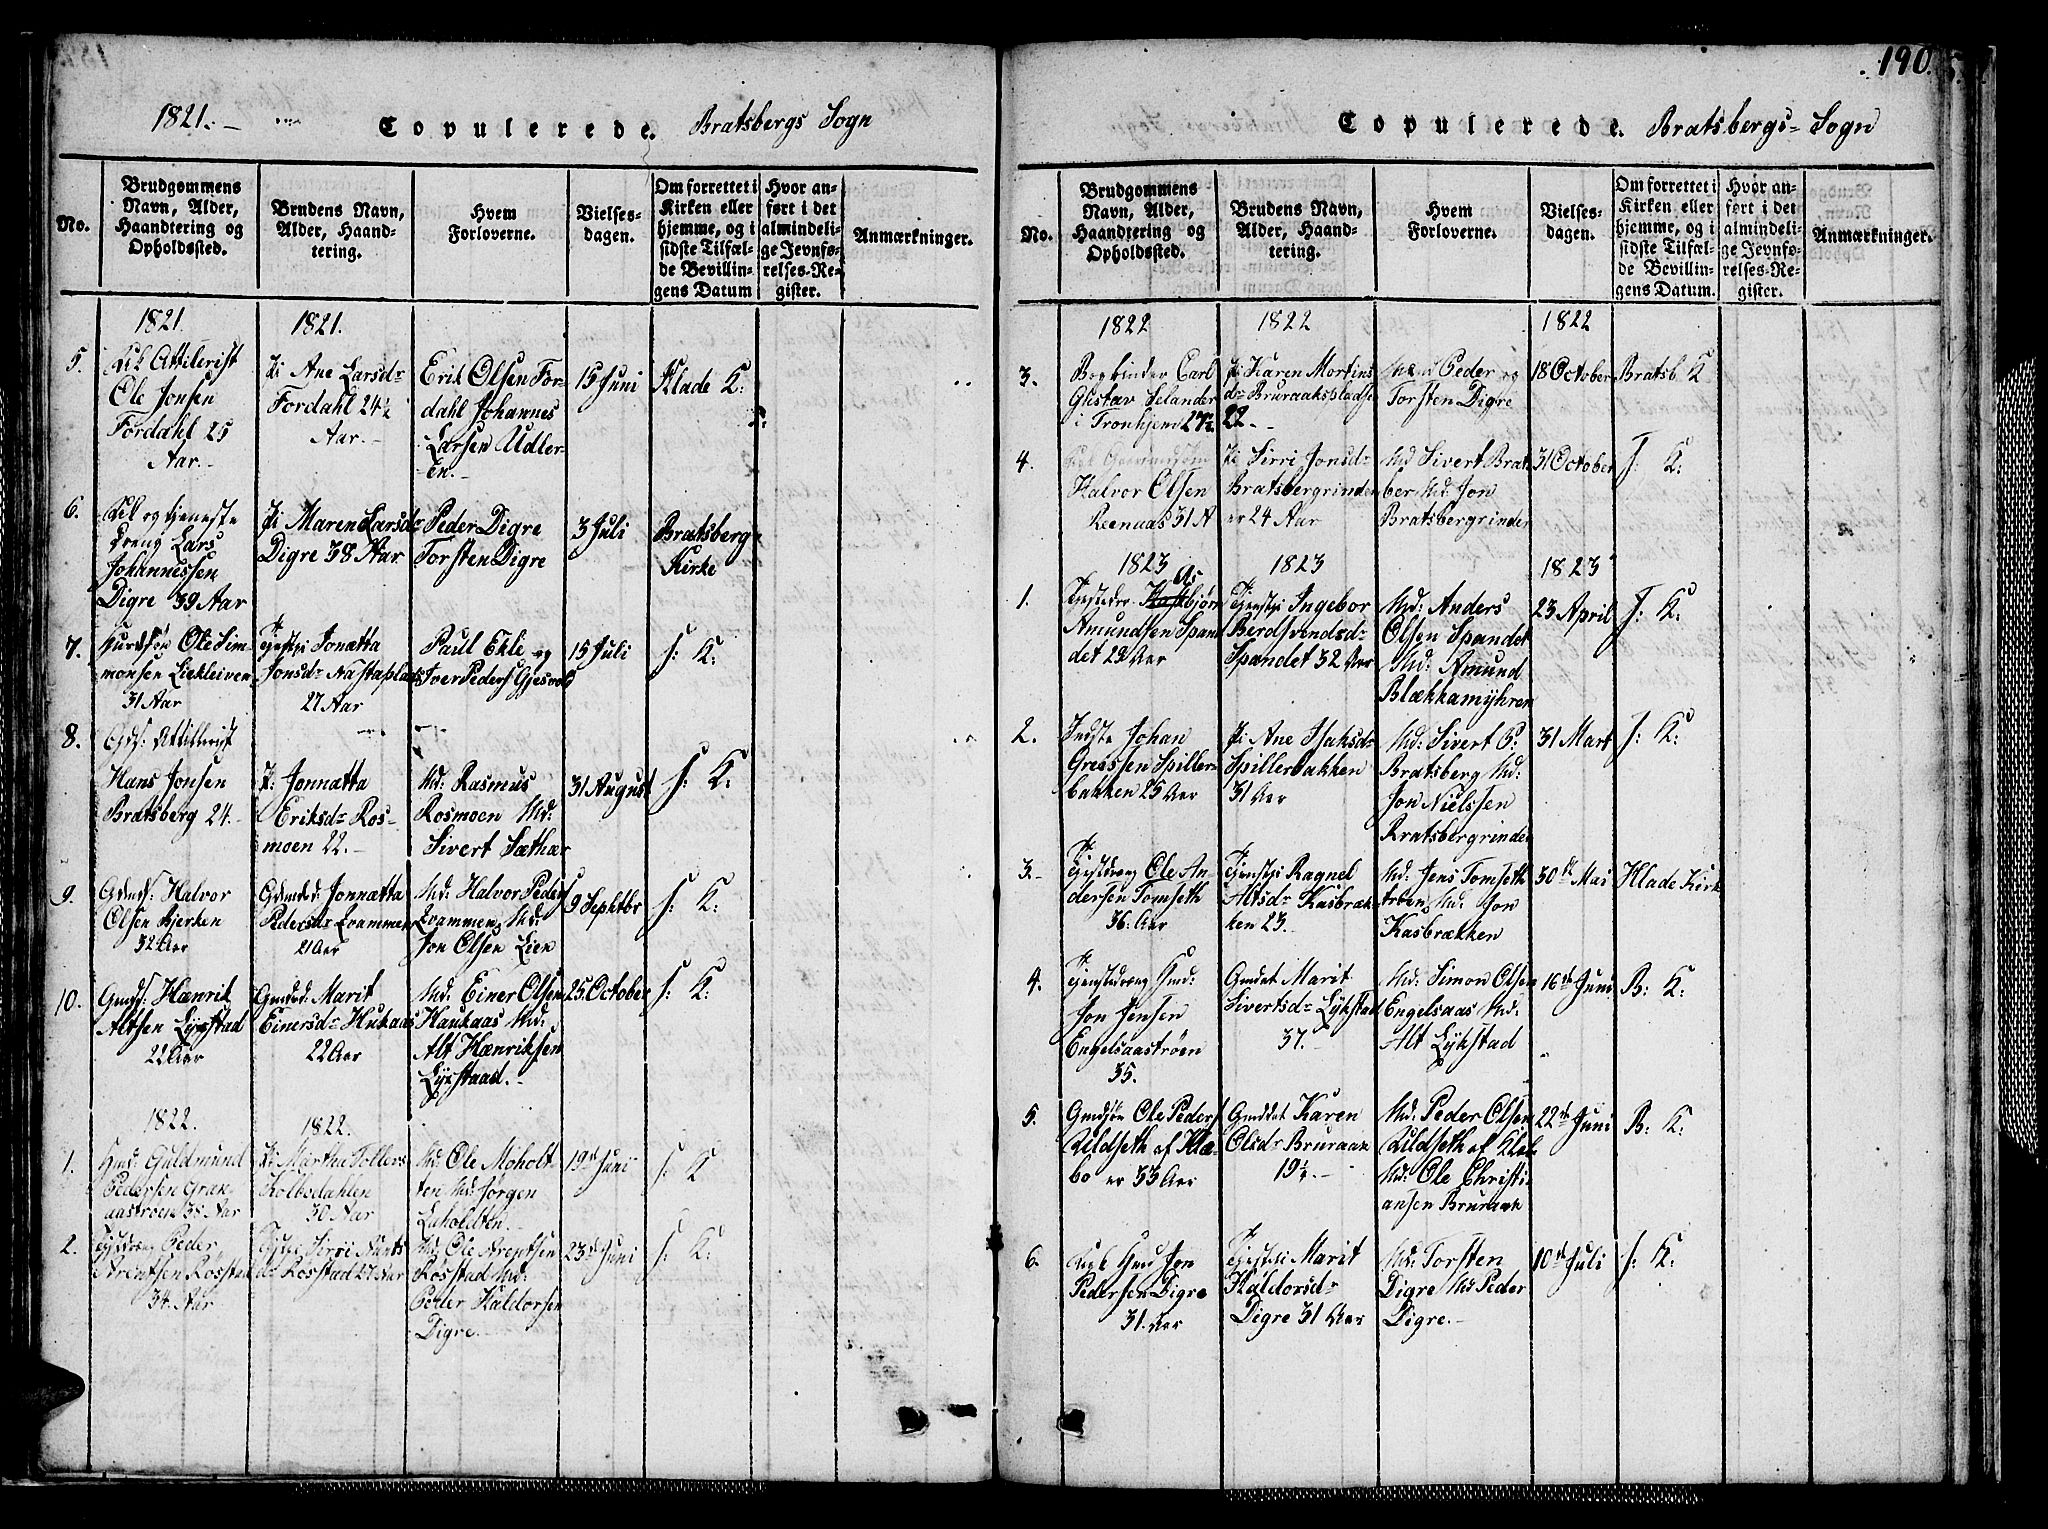 1821. –
Copulerede. Bratsbergs Sogn
No.
Brudgommens
Navn, Alder,
Haandtering og
Opholdssted.
Brudens Navn,
Alder, Haand-
tering.
Hvem
Forloverne.
Vielses-
dagen.
Om forrettet i
Kirken eller
hjemme, og i
sidste Tilfæl-
de Bevillin-
gens Datum
Hvor an-
ført i det
almindeli-
ge Jevnfø-
relses-Re-
gister.
Anmærkninger.
1821.
1821.
5.
Attilerist
Ole Jonsen
Fordahl 25
Aar. –
Pi Ane Larsdr
Fordahl 24½
Aar. –
Erik Olsen For-
dahl Johannes
Larsen Udler-
En. –
15 Juni
Hlade K:
6.
og tjeneste
Dreng Lars
Johannessen
Digre 39 Aar
Pi Maren Larsdr
Digre 38 Aar
Peder Digre
Torsten Digre
3 Juli
Bratsberg
Kirke
7.
Ole Sim-
monsen Liekleiven
31 Aar
Tjenstpi Jonatta
Jonsdr
27 Aar
Paul Ekle og
Iver Peders Gjesvold
15 Juli
J: K:
8.
Attillerist
Hans Jonsen
Bratsberg 24. –
P: Jonnatta
Eriksdr Ros-
moen 22. –
Md: Rasmus
Rosmoen Md:
Sivert Sæther
31 August
J: K:
9.
Gdmds: Halvor
Olsen Bjerken
32 Aar
Gdmdsd: Jonnatta
Pedersdr Qvammen
21 Aar
Md: Halvor Peders
Qvammen, Md:
Jon Olsen Lien
9 Septbr
J: K:
10.
Gmds: Hænrik
Altsen Lykstad
22 Aar
Gmdsd: Marit
Einersdr Hukaas
22 Aar
Md: Einer Olsen
Haukaas Md:
Alt Hænriksen
Lykstaad. –
25. October
J: K:
1822.
1822.
1.
Hmd: Guldmund
Pedersen Gran-
aastrøen 38 Aar
Pi Martha Tollers
Kolbsdahlen
30 Aar
Md: Ole Moholt-
ten Md: Jørgen
Luholdten. –
19de Juni
J: K
2.
Peder
Arentsen Rosstad
34 Aar
Tjstpi Sirri
Rosstad 27 Aar
Md: Ole Arentsen
Rosstad Md:
Peder Haldorsen
Digre. –
23de Juni
J: K:
190.
Copulerede. Bratsbergs- Sogn
No.
Brudgommens
Navn, Alder,
Haandtering og
Opholdssted.
Brudens Navn,
Alder, Haand-
tering.
Hvem
Forloverne.
Vielses-
dagen.
Om forrettet i
Kirken eller
hjemme, og i
sidste Tilfæl-
de Bevillin-
gens Datum.
Hvor an-
ført i det
almindeli-
ge Jevnfø-
relses-Re-
gister.
Anmærkninger.
1822
1822
1822
3.
Bogbinder Carl
Gustav Selander
i Tronhjem 27½
Pi Karen Mortins
dr Bruraakspladsen
22. –
Peder og
Torsten Digre
18 October
Bratsb K
4.
Halvor Olsen
Reenaas 31 A
Pi Sirri Jonsdr
Bratsbergrinden
er 24 Aar
Md Sivert Brat
ber Md: Jon
Bratsbergrinden
31 October
J: K:
1823
1823
1823
1.
As
bjørn
Amundsen Span
det 29 Aar
Tjenstpi Ingebor
Berdsvendsdr
Spandet 32 Aar
Md: Anders
Olsen Spandet
Md: Amund
Blækkamyhren
23 April
J: K:
2.
Indste Johan
Greasen Spiller-
bakken 25 Aar
Pi Ane Isaksdr
Spillerbakken
31 Aar
Md: Sivert P:
Bratsberg Md:
Jon Nielssen
Bratsbergrinden
31 Mart
J: K:
3. –
Tjenstdreng Ole An-
dersen Tomseth
36. Aar
Tjenstpi Ragnel
Altsdr Kasbræk-
ken 23.
Md: Jens Tomseth
trøen, Md: Jon
Kasbrækken
30te Mai
Hlade Kirk
4.
Tjenstdreng Hmd:
Jon Jensen
Engelsaastrøen
35.
Gmdat Marit
Sivertsdr Lykstad
37. –
Md: Simon Olsen
Engelsaas Md:
Alt Lykstad
16de Juni
B: K:
5.
Gmdsøn Ole Peders
Uldseth af Klæ-
bo er 33 Aar
Gmddat Karen
Olsdr Bruraak
19½. –
Md: Peder Olsen
Uldseth af Klæb
Md: Ole Christi
ansen Bruraak
22de Juni
B: K:
6.
Hmd Jon
Pedersen Digre
31. Aar
Tjenstpi Marit
Haldorsdr
Digre 31 Aar
Md: Torsten
Digre Md Peder
Digre. –
10de Juli
J: K: